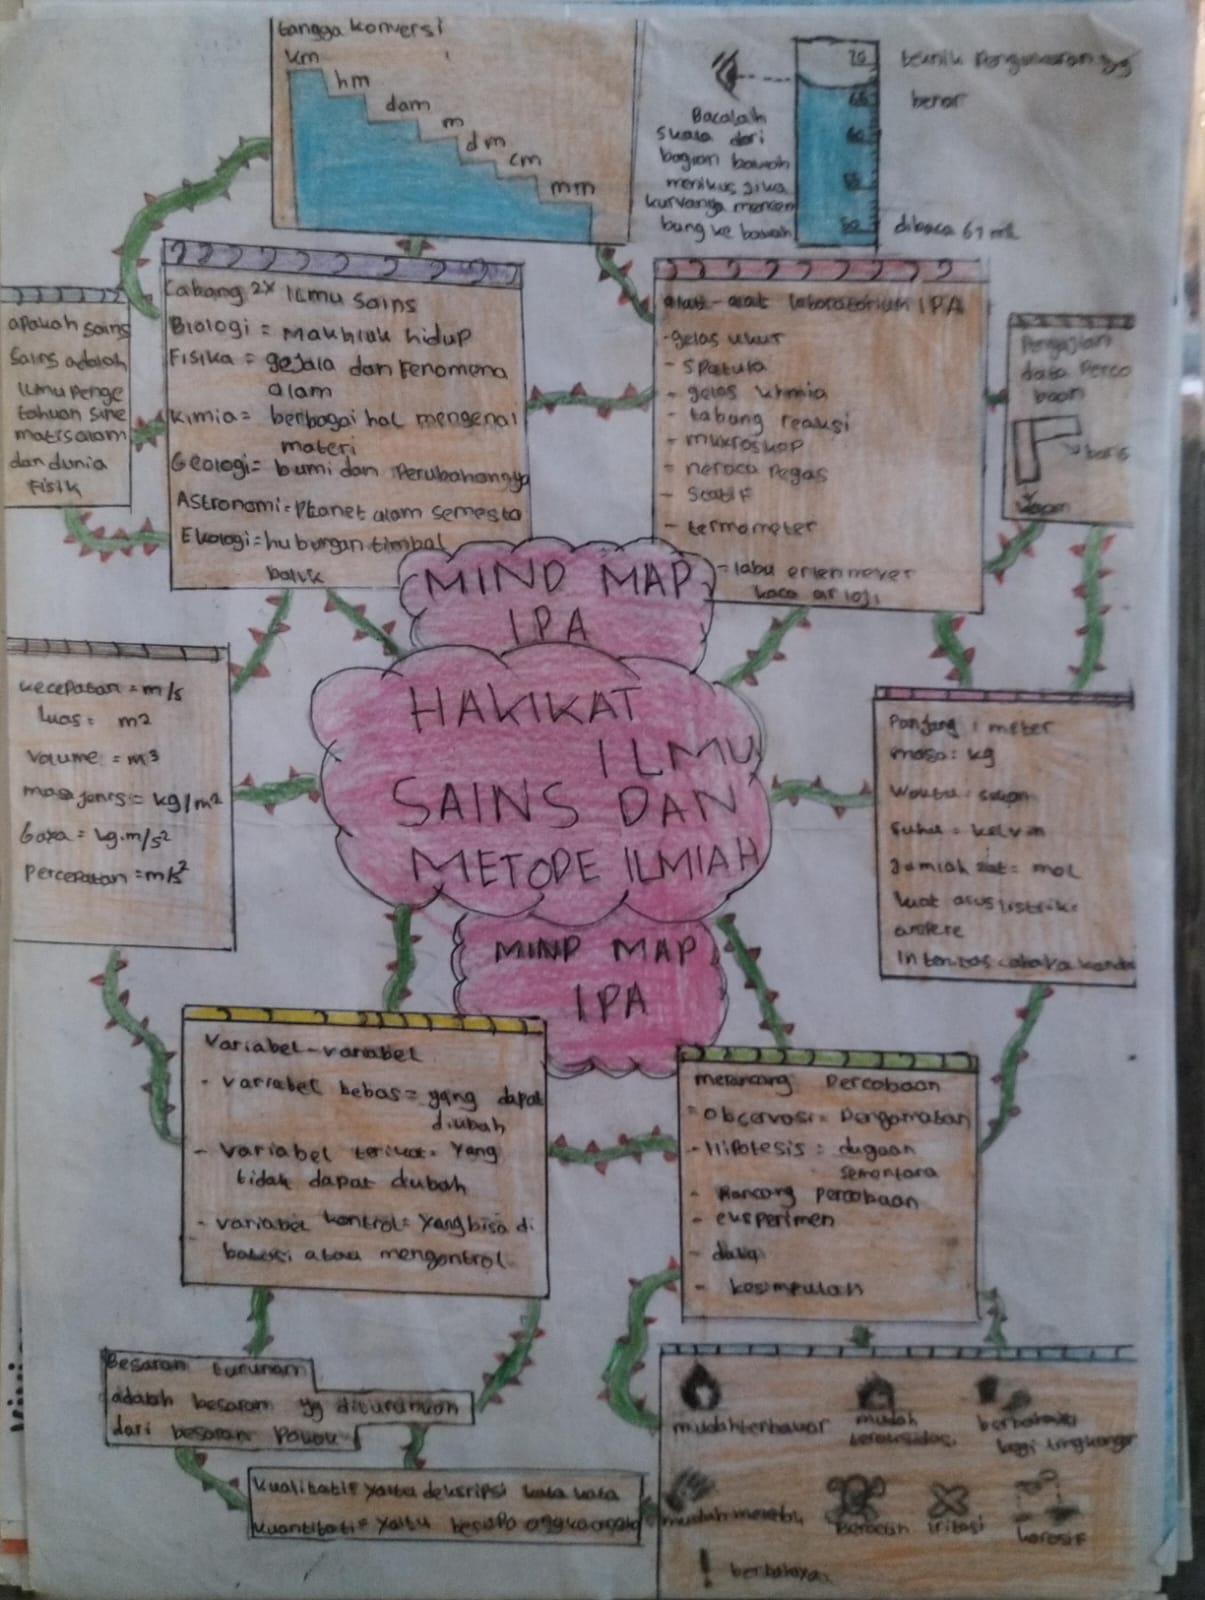 tangga konversi
km
hm
dam
m
dm
cm
mm
Bacalah
skala dari
bagian bawah
menikus jika
kurvanya mencem
bung ke bawah
70
65
60
55
50
teknik pengukuran yg
benar
dibaca 67 ml
apakah sains
Sains adalah
ilmu Penge
tahuan sine
matis alam
dan dunia
Fisik
Cabang 2x Ilmu Sains
Biologi = Makhluk hidup
Fisika = gejala dan Fenomena
alam
Kimia = berbagai hal mengenai
materi
Geologi = bumi dan Perubahannya
Astronomi = Planet alam semesta
Ekologi = hubungan timbal
balik
alat-alat laboratorium IPA
- gelas ukur
- Spatula
- gelas khmia
- tabang reaksi
- mikroskop
- neraca Pegas
- Statif
- termometer
- labu erlenmeyer
kaca arloji
Pengujian
data Perco
baan
baris
MIND MAP
IPA
HAKIKAT
ILMU
SAINS DAN
METODE ILMIAH
MIND MAP
IPA
kecepatan = m/s
luas = m2
Volume = m3
masa jenis = kg/m2
Gaya = kg.m/s2
Percepatan = m/s2
Panjang : meter
masa : kg
Waktu : sekon
Suhu = kelvin
Jumlah zat = mol
kuat arus listrik =
ampere
Intensitas cahaya kande
Variabel-variabel
- variabel bebas = yang dapat
diubah
- variabel terikat = yang
tidak dapat diubah
- variabel kontrol = yang bisa di
batasi atau mengontrol
merancang Percobaan
- observasi = pengamatan
- Hipotesis : dugaan
sementara
- Rancang percobaan
- eksperimen
- data
- kesimpulan
Besaran turunan
adalah besaran yg diturunkan
dari besaran Pokok
kualitatif yaitu deksripsi kata kata
kuantitati = yaitu berapa angka angka
mudah terbakar
mudah
teroksidasi
berbahaya
bagi lingkungan
mudah meledak
Beracun
iritasi
korosif
! berbahaya